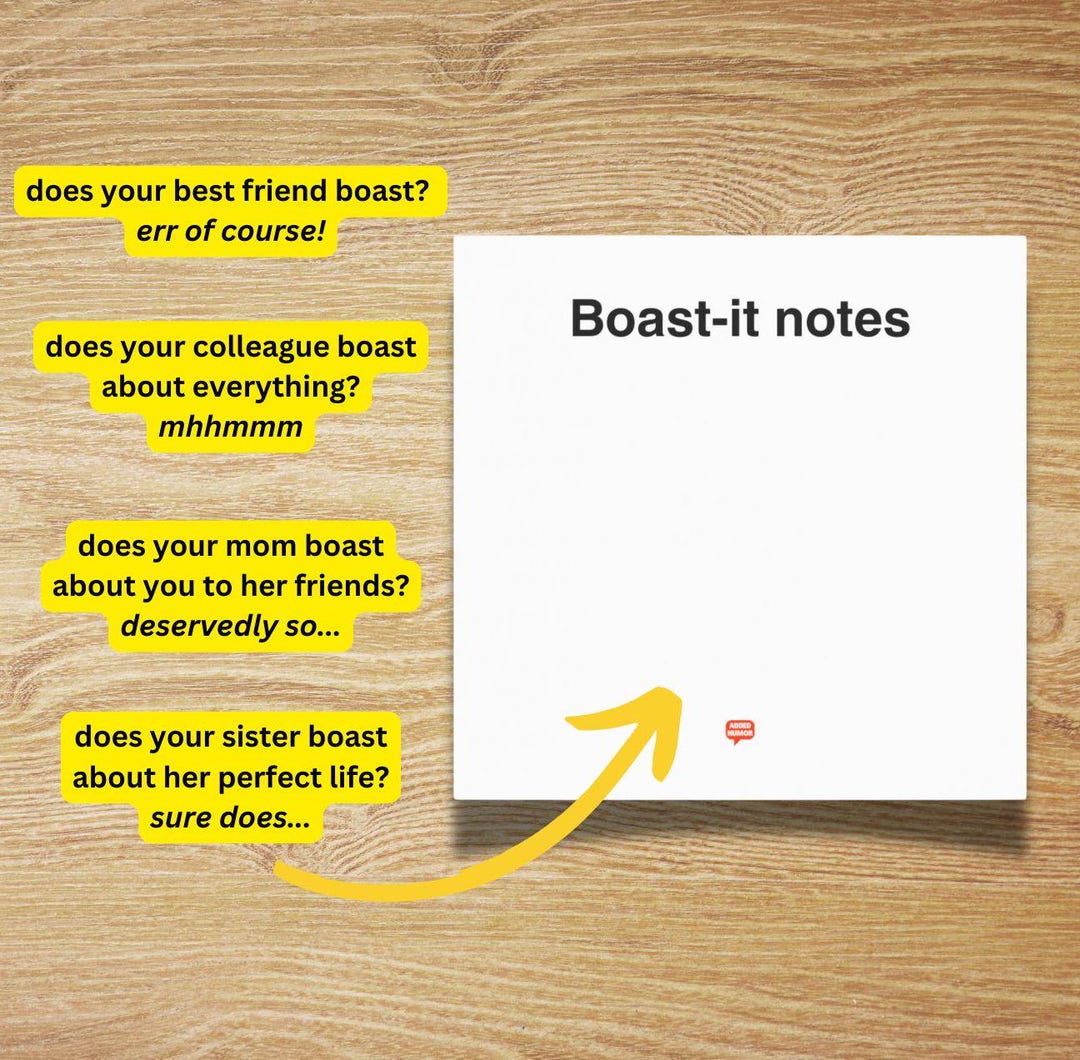 does your best friend boast?
err of course!
does your colleague boast
about everything?
mhhmmm
does your mom boast
about you to her friends?
deservedly so...
does your sister boast
about her perfect life?
sure does...
Boast-it notes
ADDED
HUMOR